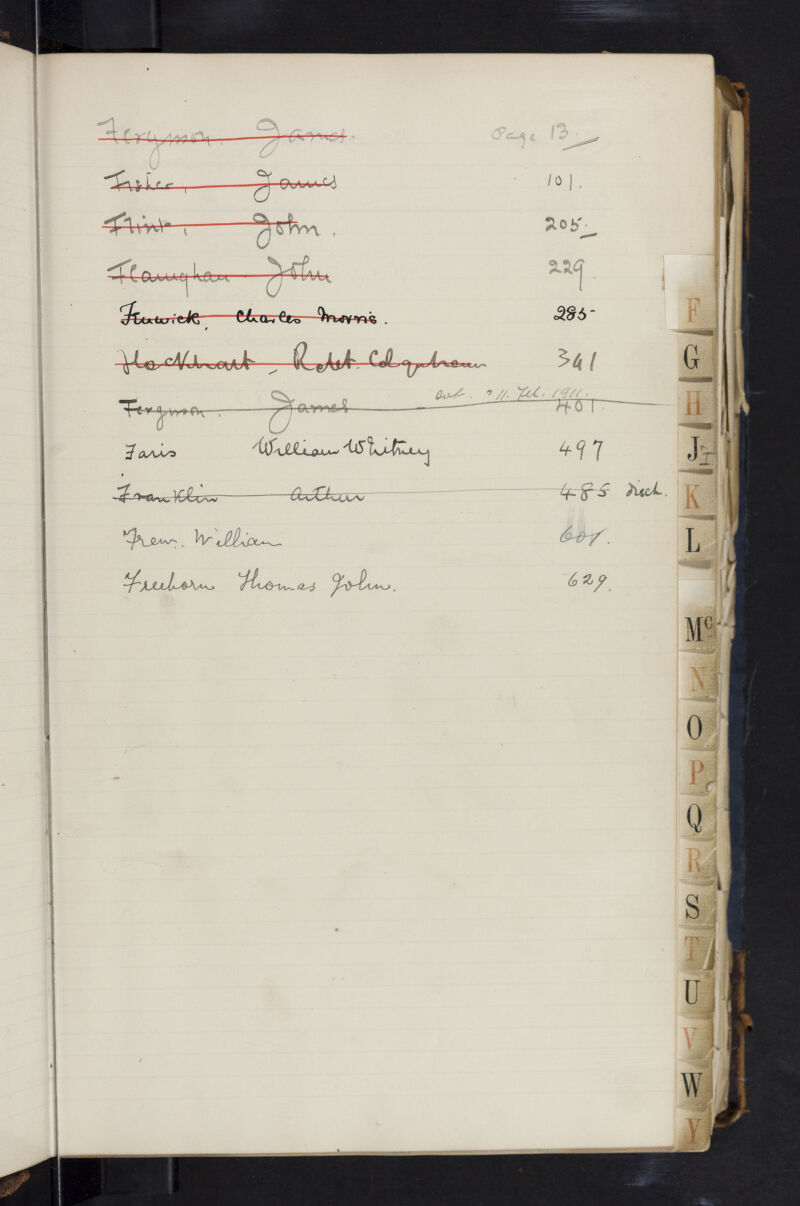 Ferguson. James. Page 13.
Fisher, James 101.
Flint, John. 205.
Flanighan John 229.
Fenwick, Charles Morris. 285
Flockhart, Robt. Colquhoun 341
Ferguson. James 11. Feb. 1911. 401.
Faris William Whitney 497
Franklin Arthur 485 disch.
Frew. William 601.
Freeborn Thomas John. 629.
F
G
H
J I
K
L
Mc
N
O
P
Q
R
S
T
U
V
W
Y